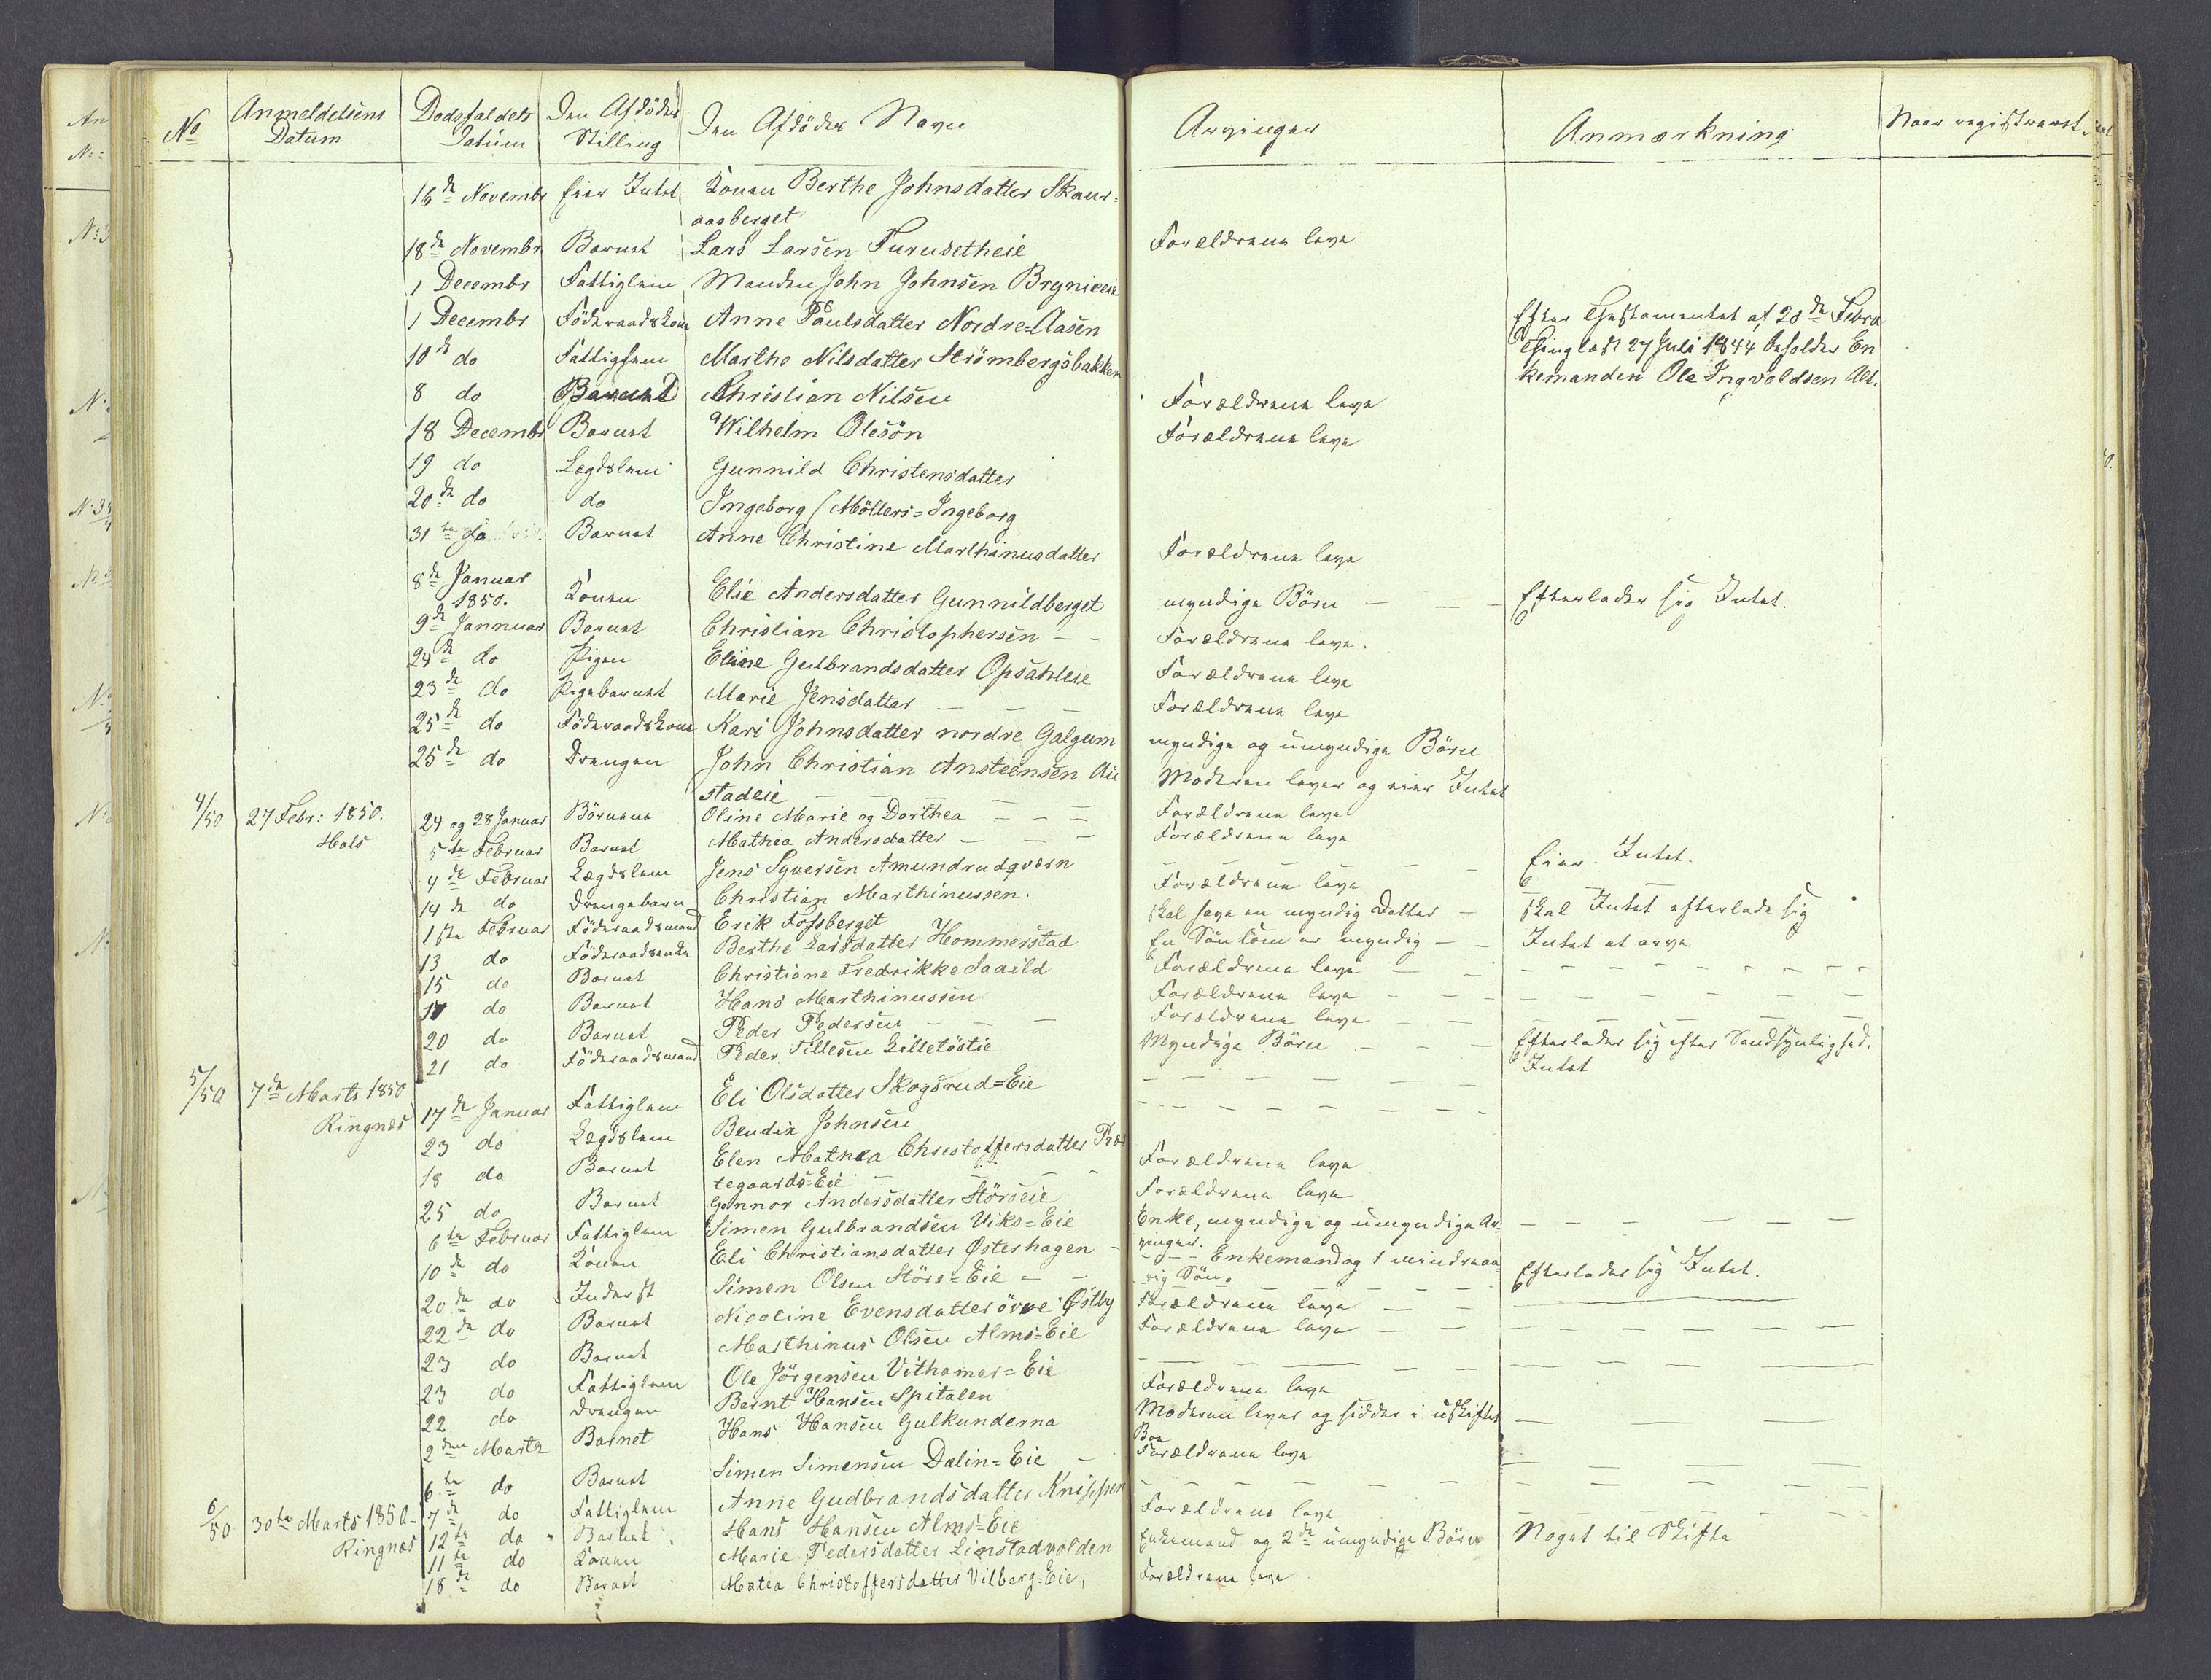 No Anmeldelsens Datum Dødsfaldets Datum Den Afdødes Stilling Den Afdødes Navn Arvinger Anmærkning Naar registreret
16de Novembr Eier Intet Konen Berthe Johnsdatter Skaur=
aasberget
18de Novembr Barnet Lars Larsen Furusetheie Forældrene leve
1 Decembr Fattiglem Manden John Johnsen Brynieeie
1 Decembr Föderaadskone Anne Paulsdatter Nordre=Aasen Efter Testamentet af 28de Febru
Thinglæst 27 Juli 1844 beholder En
kemanden Ole Ingvoldsen Alt.
10de do Fattiglem Marthe Nilsdatter Strömbergsbakken
8 do Barnet Christian Nilsen Forældrene leve
18 Decembr Barnet Wilhelm Olesön Forældrene leve
19 do Lægdslem Gunnild Christensdatter
20de do do Ingeborg (Möllers=Ingeborg
31te Barnet Anne Christine Marthinusdatter Forældrene leve
8de Januar
1850. Konen Elie Andersdatter Gunnildberget myndige Börn — — — Efterlader sig Intet.
9de Jannuar Barnet Christian Christophersen — — Forældrene leve.
24de do Pigen Eline Gulbrandsdatter Opsahleie Forældrene leve
23de do Pigebarnet Marie Jensdatter — — — Forældrene leve
25de do Föderaadskone Kari Johnsdatter nordre Galgum myndige og umyndige Börn
25de do Drengen John Christian Ansteensen Au
stadeie — — — — — Moderen lever og eier Intet
4/50 27 Febr: 1850. 24 og 28 Januar Börnene Oline Marie og Dorthea — — — Forældrene leve
Hals 5te Februar Barnet Mathea Andersdatter — — — Forældrene leve
4de Februar Lægdslem Jens Syversen Amundrudqværn — — — — — Eier Intet.
14de do Drengebarn Christian Marthinussen. Forældrene leve
1ste Februar Föderaadsmand Erik Fossberget skal have en myndig Datter — skal Intet efterlade sig
13 do Föderaadsenke Berthe Larsdatter Hommerstad En Sön som er myndig — — Intet at arve
15 do Barnet Christiane Fredrikke Saxild Forældrene leve — —
17 do Barnet Hans Marthinussen Forældrene leve — — —
20 do Barnet Peder Pedersen — — — Forældrene leve — —
21 do Föderaadsmand Peder Tillesen Lilletöstie Myndige Börn — — — Efterlader sig efter Sandsynlighed.
Intet
5/50 7de Marts 1850 17de Januar Fattiglem Eli Olsdatter Skogsrud=Eie
Ringnæs 23 do Lægdslem Bendix Johnsen
18 do Barnet Elen Mathea Christoffersdatter Præs
tegaards=Eie Forældrene leve
25 do Barnet Gunnor Andersdatter Störseie Forældrene leve
6te Februar Fattiglem Simen Gulbrandsen Viks=Eie Enke, myndige og umyndige Ar=
vinger.
10de do Konen Eli Christiansdatter Østerhagen — — — Enkemand og 1 mindreaa
rig Sön. Efterlader sig Intet.
20de do Inderst Simen Olsen Störs=Eie
22de do Barnet Nicoline Evensdatter övre Østby Forældrene leve — —
23 do Barnet Marthinus Olsen Alms=Eie Forældrene leve — —
23 do Fattiglem Ole Jörgensen Vithamer=Eie
22 do Drengen Bernt Hansen Spitalen Forældrene leve
2den Marts Barnet Hans Hansen Gulkunderna Moderen lever og sidder i uskiftet
Boe
6te do Barnet Simen Simensen Dælin=Eie — Forældrene leve
6/50 30te Marts 1850 7de do Fattiglem Anne Gudbrandsdatter Knippen
Ringnæs 12te do Barnet Hans Hansen Alms=Eie Forældrene leve
11te do Konen Marie Pedersdatter Linstadvolden Enkemand og 2de umyndige Börn Noget til Skifte
18de do Barnet Matea Christoffersdatter Vilberg=Eie, Forældrene leve